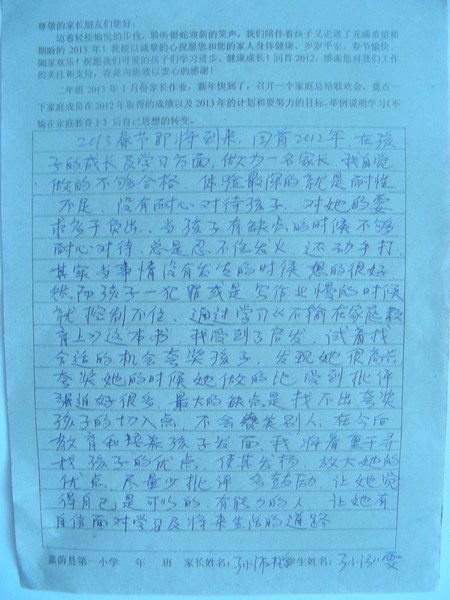 尊敬的家长朋友们您好:
迈着轻松愉悦的步伐,聆听银蛇迎新的笑声,我们陪伴着孩子又走进了充满希望和
期盼的 2013 年!我校以诚挚的心祝愿您和您的家人身体健康、岁岁平安、春节愉快、
阖家欢乐!祝愿我们可爱的孩子们学习进步、健康成长!回首 2012,感谢您对我们工作
的关注和支持,在此向您致以衷心的感谢!
二年组 2013 年 1 月份家长作业,新年快到了,召开一个家庭总结联欢会,盘点一
下家庭成员在 2012 年取得的成绩以及 2013 年的计划和要努力的目标,举例说明学习《不
输在家庭教育上》后自己思想的转变。
2013春节即将到来,回首2012年,在孩
子的成长及学习方面,做为一名家长,我自觉
做的不够合格,体验最深的就是耐性
不足,没有耐心对待孩子,对她的要
求多于负出.当孩子有缺点的时候不够
耐心对待,总是忍不住发火,还动手打,
其实当事情没有发生的时候想的很好,
然而孩子一犯罪或是写作业慢的时候
就控制不住,通过学习《不输在家庭教
育上》这本书,我受到了启发,试着找
合适的机会夸奖孩子,发现她很高兴
夸奖她的时候她做的比受到批评
强迫好很多,最大的缺点是找不出夸奖
孩子的切入点,不会赞美别人,在今后
教育和培养孩子方面,我将着重于寻
找孩子的优点,使其发扬,放大她的
优点,尽量少批评,多鼓励,让她觉
得自己是可以的,有能力的人,让她有
自信面对学习及将来生活的道路
嘉荫县第一小学 年 班 家长姓名: 学生姓名: